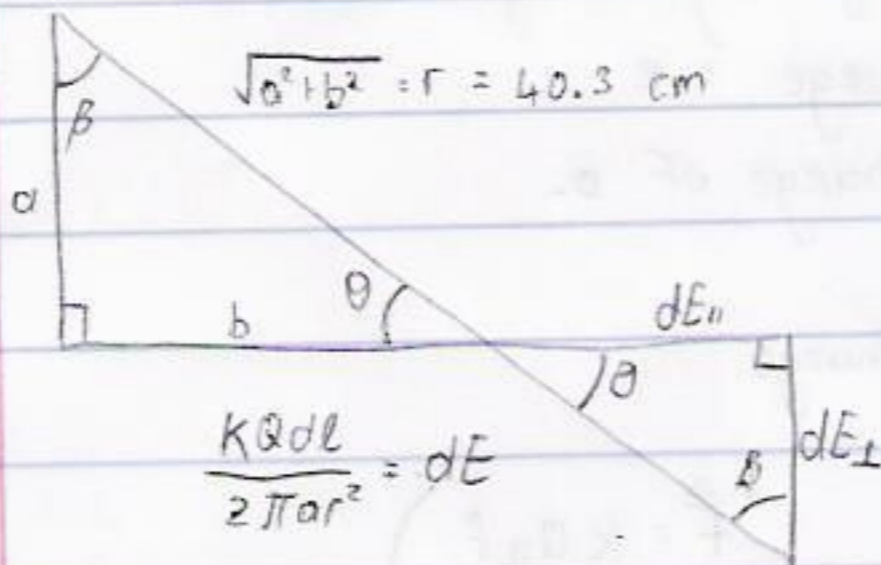 √a²+b² = r = 40.3 cm
β
a
θ
b
dE∥
θ
KQdl / 2πar² = dE
β
dE⊥